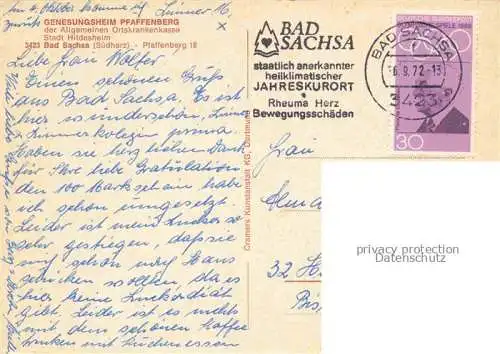 am 4. Oktober komme ich Zimmer 16,
zurück
GENESUNGSHEIM PFAFFENBERG
der Allgemeinen Ortskrankenkasse
Stadt Hildesheim
3423 Bad Sachsa (Südharz) - Pfaffenberg 18
Liebe Frau Wolter!
Einen schönen Gruß
aus Bad Sachsa. Es ist
hier so wunderschön, Zimmer
Zimmerkollegin prima.
Haben sie herzlichen Dank
für Ihre liebe Gratulation
den 100 Markschein habe
ich schon umgesetzt.
Leider ist mein Zucker so
sehr gestiegen, daß sie
mich schon nach Haus
schicken wollten, da es
hier keine Zuckerdiät
gibt. Leider ist es nichts
mit dem schönen Kaffee
trinken und Kuchenessen
Viele liebe Grüße
Cramers Kunstanstalt KG, Dortmund
BAD
SACHSA
staatlich anerkannter
heilklimatischer
JAHRESKURORT
Rheuma Herz
Bewegungsschäden
BAD SACHSA
-6.9.72-13
3423
DEUTSCHE BUNDESPOST
30
Frau
32 H
privacy protection
Datenschutz